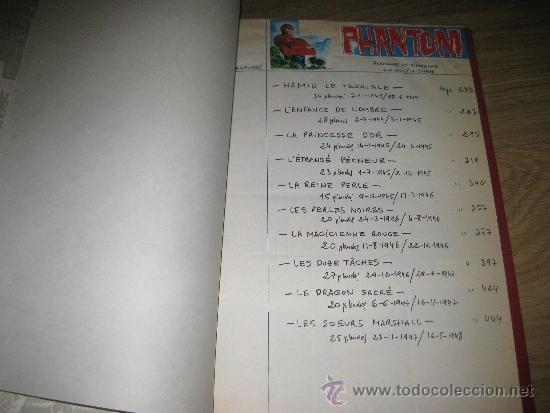 PHANTOM
AVENTURES
PLANCHES DU DIMANCHE
- HAMID LE TERRIBLE - Page 233
- L'ENFANCE DE L'OMBRE - " 267
28 planches 2-7-1944/ 7-1-1945
- LA PRINCESSE D'OR - " 295
24 planches 14-1-1945/24-6-1945
- L'ÉTRANGE PÊCHEUR - " 319
23 planches 1-7-1945/2-12-1945
- LA REINE PERLE - " 342
15 planches 9-12-1945/17-3-1946
- LES PERLES NOIRES - " 357
20 planches 24-3-1946/4-8-1946
- LA MAGICIENNE ROUGE - " 377
20 planches 11-8-1946/22-12-1946
- LES DUZE TÂCHES - " 397
27 planches 29-12-1946/29-6-1947
- LE DRAGON SACRÉ - " 424
20 planches 6-6-1947/16-11-1947
- LES SOEURS MARSHALL - " 444
25 planches 23-11-1947/16-5-1948
todocoleccion
www.todocoleccion.net